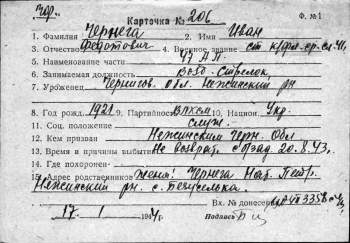 Ф. № 1
Карточка № 206
1. Фамилия Чернега 2. Имя Иван
3. Отчество Федотович 4. Военное звание ст
5. Наименование части 47 АП
6. Занимаемая должность Возд. Стрелок
7. Уроженец Чернигов. обл. Нежинский рн
8. Год рожд. 1921 9. Партийность ВЛКСМ 10. Национ. Укр.
11. Соц. положение служ.
12. Кем призван Нежинским Черн. Обл
13. Время и причины выбытия Не возврат. с б/зад 20.8.43.
14. Где похоронен
15. Адрес родственников жена: Чернега Нат. Петр.
Нежинский рн. с.
Вх. № донесения
17. 1 1944 г. Подпись